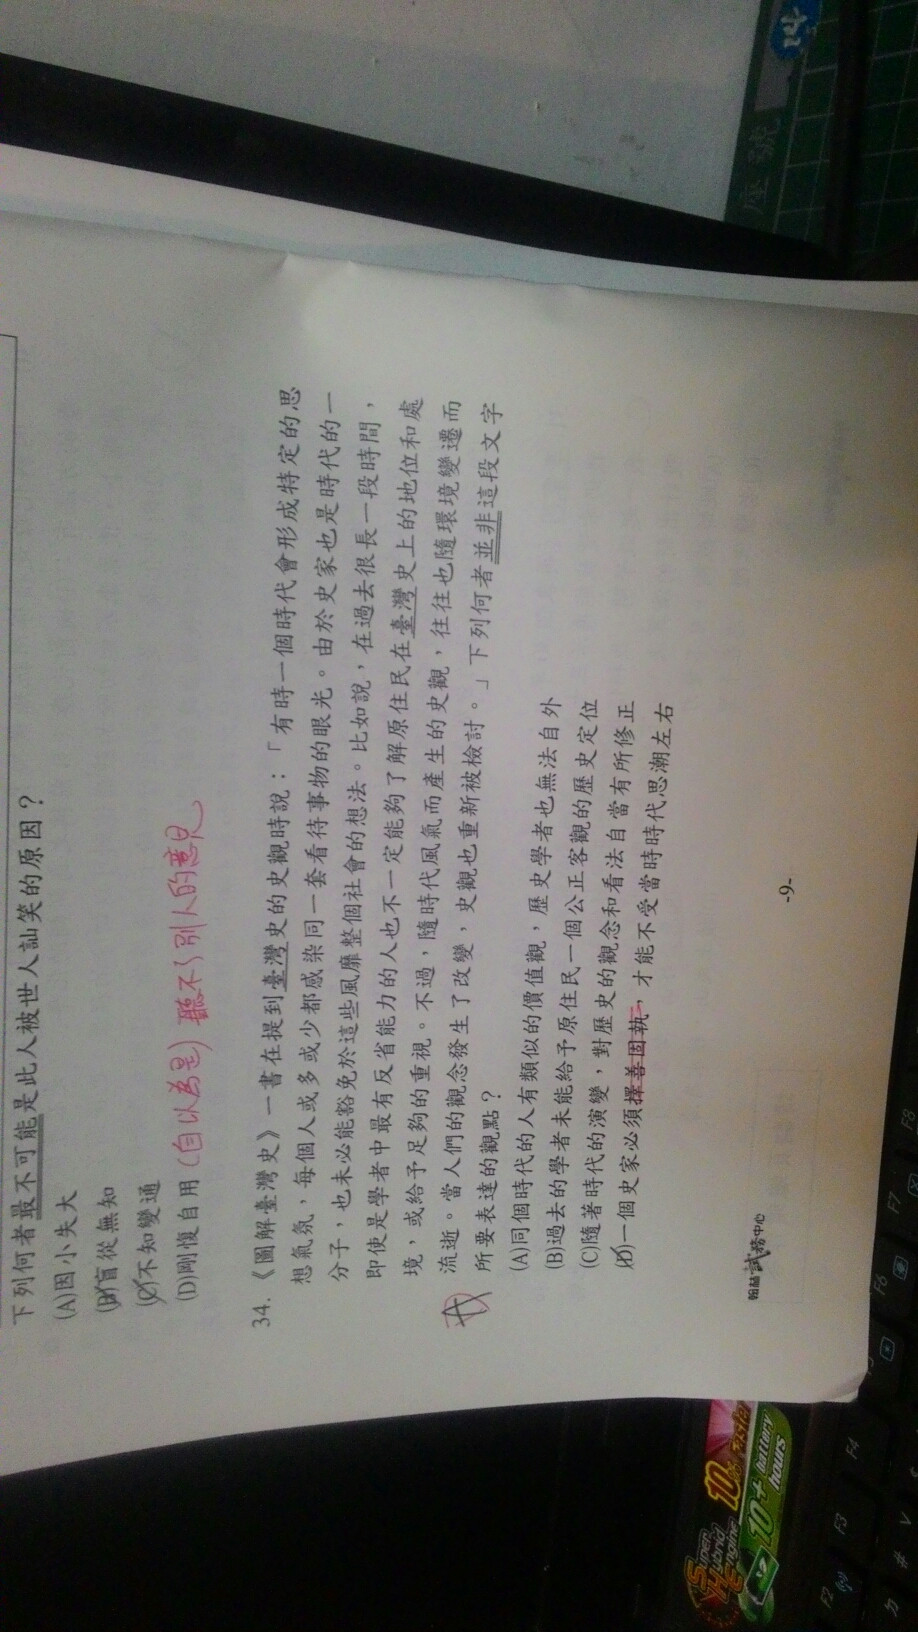 下列何者最不可能是此人被世人訕笑的原因？
(A)因小失大
(B)盲從無知
(C)不知變通
(D)剛愎自用 (自以為是) 聽不了別人的意見
34.《圖解臺灣史》一書在提到臺灣史的史觀時說：「有時一個時代會形成特定的思
想氣氛，每個人或多或少都感染同一套看待事物的眼光。由於史家也是時代的一
分子，也未必能豁免於這些風靡整個社會的想法。比如說，在過去很長一段時間，
即使是學者中最有反省能力的人也不一定能夠了解原住民在臺灣史上的地位和處
境，或給予足夠的重視。不過，隨時代風氣而產生的史觀，往往也隨環境變遷而
流逝。當人們的觀念發生了改變，史觀也重新被檢討。」下列何者並非這段文字
所要表達的觀點？
(A)同個時代的人有類似的價值觀，歷史學者也無法自外
(B)過去的學者未能給予原住民一個公正客觀的歷史定位
(C)隨著時代的演變，對歷史的觀念和看法自當有所修正
(D)一個史家必須擇善固執，才能不受當時時代思潮左右
翰林試務中心
-9-
座號
14
Super
Hybrid
Engine
10% Faster
10+ battery
hours
F2
F3
F4
F6
F7
F8